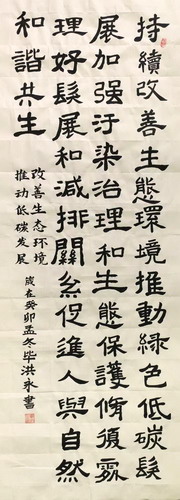 持續改善生態環境推動綠色低碳髮
展加强汙染治理和生態保護脩復處
理好髮展和減排關系促進人與自然
和諧共生
改善生态环境
推动低碳发展
歲在癸卯孟冬毕洪永書